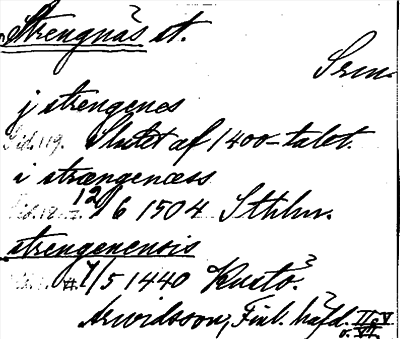 Strengnäs st.
Srm.
j strengenes
Sid. 119. Slutet af 1400-talet.
i strængenæss
12/6 1504 Sthlm.
strengenensis
7/5 1440 Kustö.
Arvidsson, Finl. häfd. II o. V
o. VII.